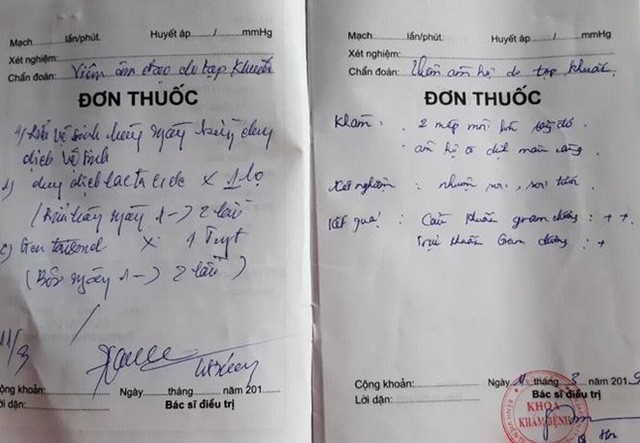 Mạch lần/phút. Huyết áp / mmHg
Xét nghiệm:
Chẩn đoán: Viêm âm đạo do tạp khuẩn
ĐƠN THUỐC
vệ sinh hàng ngày bằng dung
dịch vệ sinh
1) dung dịch lactacide x 1 lọ
ngày 1 -> 2 lần)
2) x 1 Tuyt
(Bôi ngày 1 -> 2 lần)
11/3
Cộng khoản: Ngày tháng năm 201
Lời dặn: Bác sĩ điều trị
Mạch lần/phút. Huyết áp / mmHg
Xét nghiệm:
Chẩn đoán: Viêm âm hộ do tạp khuẩn.
ĐƠN THUỐC
Khám: . 2 mép môi đỏ
. âm hộ màng
Xét nghiệm: nhuộm soi, soi tươi
Kết quả: Cầu khuẩn gram dương: + +
Trực khuẩn Gram dương: +
Cộng khoản: Ngày 11 tháng 3 năm 2019
Lời dặn: Bác sĩ điều trị
KHOA
KHÁM BỆNH